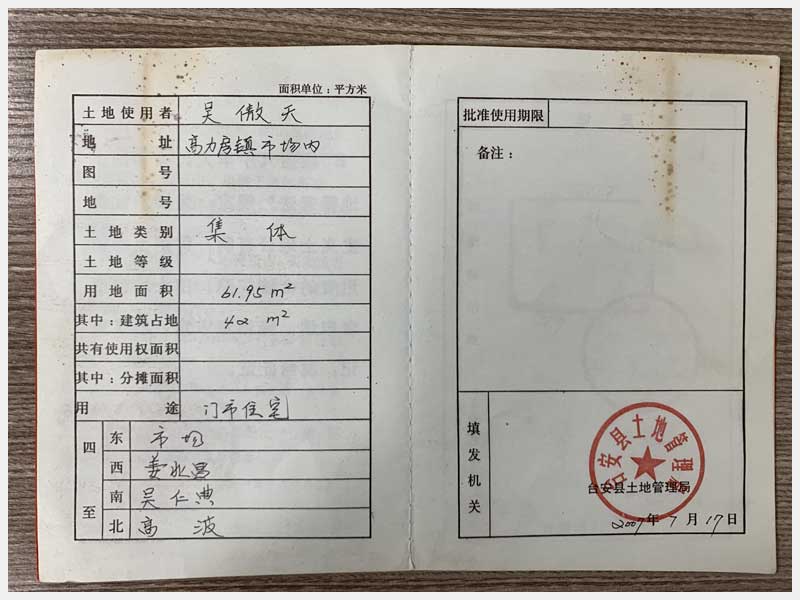 面积单位：平方米
土地使用者 吴傲天
地址 高力房镇市场内
图号
地号
土地类别 集体
土地等级
用地面积 61.95 m²
其中：建筑占地 42 m²
共有使用权面积
其中：分摊面积
用途 门市住宅
四至
东 市场
西 姜永昌
南 吴仁典
北 高波
批准使用期限
备注：
填发机关
台安县土地管理局
台安县土地管理局
2007年7月17日